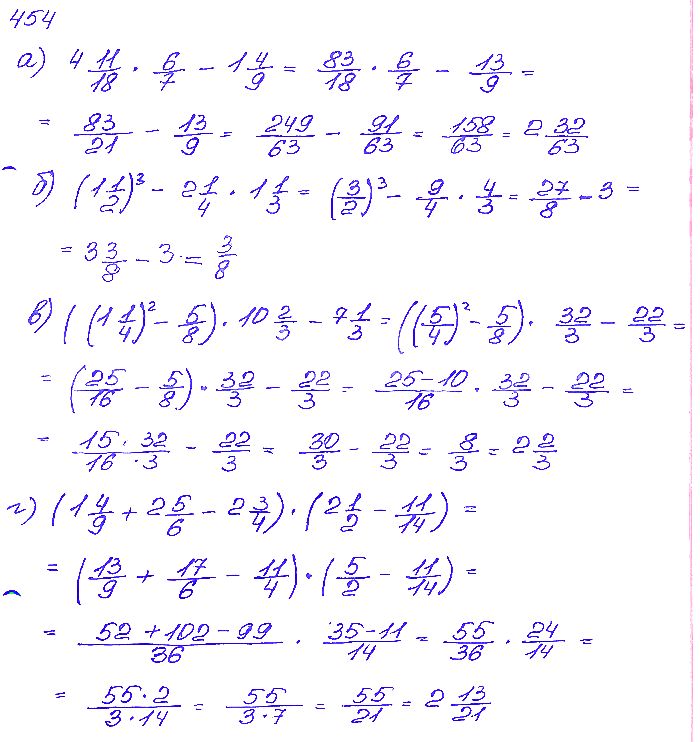 454
а) 4 11/18 · 6/7 − 1 4/9 = 83/18 · 6/7 − 13/9 =
= 83/21 − 13/9 = 249/63 − 91/63 = 158/63 = 2 32/63
б) (1 1/2)³ − 2 1/4 · 1 1/3 = (3/2)³ − 9/4 · 4/3 = 27/8 − 3 =
= 3 3/8 − 3 = 3/8
в) ((1 1/4)² − 5/8) · 10 2/3 − 7 1/3 = ((5/4)² − 5/8) · 32/3 − 22/3 =
= (25/16 − 5/8) · 32/3 − 22/3 = 25−10/16 · 32/3 − 22/3 =
= 15 · 32/16 · 3 − 22/3 = 30/3 − 22/3 = 8/3 = 2 2/3
г) (1 4/9 + 2 5/6 − 2 3/4) · (2 1/2 − 11/14) =
= (13/9 + 17/6 − 11/4) · (5/2 − 11/14) =
= 52 + 102 − 99/36 · 35−11/14 = 55/36 · 24/14 =
= 55 · 2/3 · 14 = 55/3 · 7 = 55/21 = 2 13/21